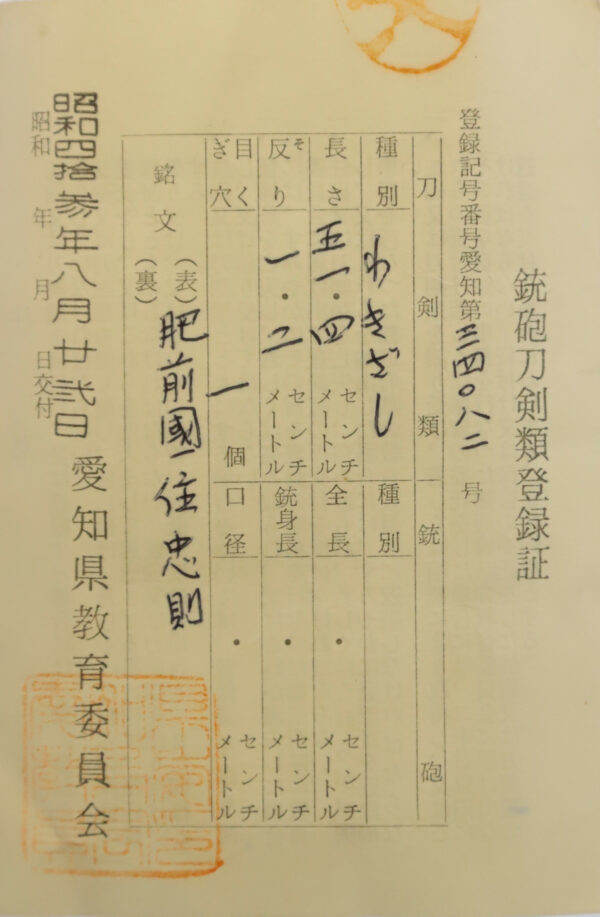 銃砲刀剣類登録証
登録記号番号愛知第三四〇八二号
刀剣類
種別 わきざし
長さ 五一・四 センチメートル
反り そ 一・二 センチメートル
目くぎ穴 一 個
銃砲
種別
全長 ・ センチメートル
銃身長 ・ センチメートル
口径 ・ センチメートル
銘文 (表) 肥前國住忠則
(裏)
昭和四拾参年八月廿弐日
昭和 年 月 日交付
愛知県教育委員会